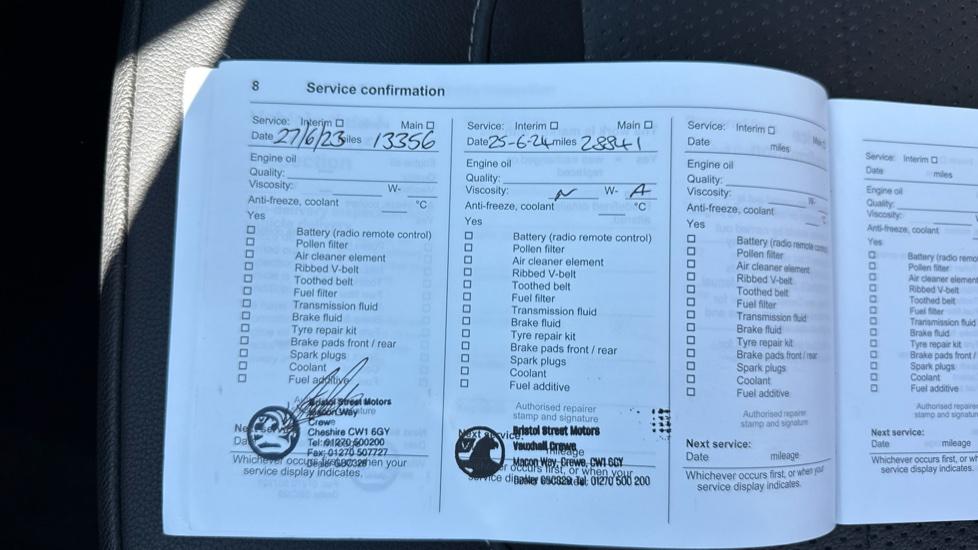 8 Service confirmation
Service: Interim Main
Date 27/6/23 miles 13356
Engine oil
Quality:
Viscosity: W-
Anti-freeze, coolant °C
Yes
Battery (radio remote control)
Pollen filter
Air cleaner element
Ribbed V-belt
Toothed belt
Fuel filter
Transmission fluid
Brake fluid
Tyre repair kit
Brake pads front / rear
Spark plugs
Coolant
Fuel additive
Bristol Street Motors
Macon Way
Crewe
Cheshire CW1 6GY
Tel: 01270 500200
Fax: 01270 507727
Whichever occurs first, or when your
service display indicates.
Service: Interim Main
Date 25-6-24 miles 28841
Engine oil
Quality:
Viscosity: N W- A
Anti-freeze, coolant °C
Yes
Battery (radio remote control)
Pollen filter
Air cleaner element
Ribbed V-belt
Toothed belt
Fuel filter
Transmission fluid
Brake fluid
Tyre repair kit
Brake pads front / rear
Spark plugs
Coolant
Fuel additive
Authorised repairer
stamp and signature
Next service:
Bristol Street Motors
Vauxhall Crewe
mileage
Macon Way, Crewe, CW1 6GY
occurs first, or when your
service Tel: 01270 500 200
Service: Interim
Date miles
Engine oil
Quality:
Viscosity: W-
Anti-freeze, coolant °C
Yes
Battery (radio remote
Pollen filter
Air cleaner element
Ribbed V-belt
Toothed belt
Fuel filter
Transmission fluid
Brake fluid
Tyre repair kit
Brake pads front / rear
Spark plugs
Coolant
Fuel additive
Authorised repairer
stamp and signature
Next service:
Date mileage
Whichever occurs first, or when your
service display indicates.
Service: Interim
Date miles
Engine oil
Quality:
Viscosity:
Anti-freeze, coolant
Yes
Battery (radio remo
Pollen filter
Air cleaner element
Ribbed V-belt
Toothed belt
Fuel filter
Transmission fluid
Brake fluid
Tyre repair kit
Brake pads front /
Spark plugs
Coolant
Fuel additive
Authorised repairer
stamp and signature
Next service:
Date mileage
Whichever occurs first, or wh
service display indicates.